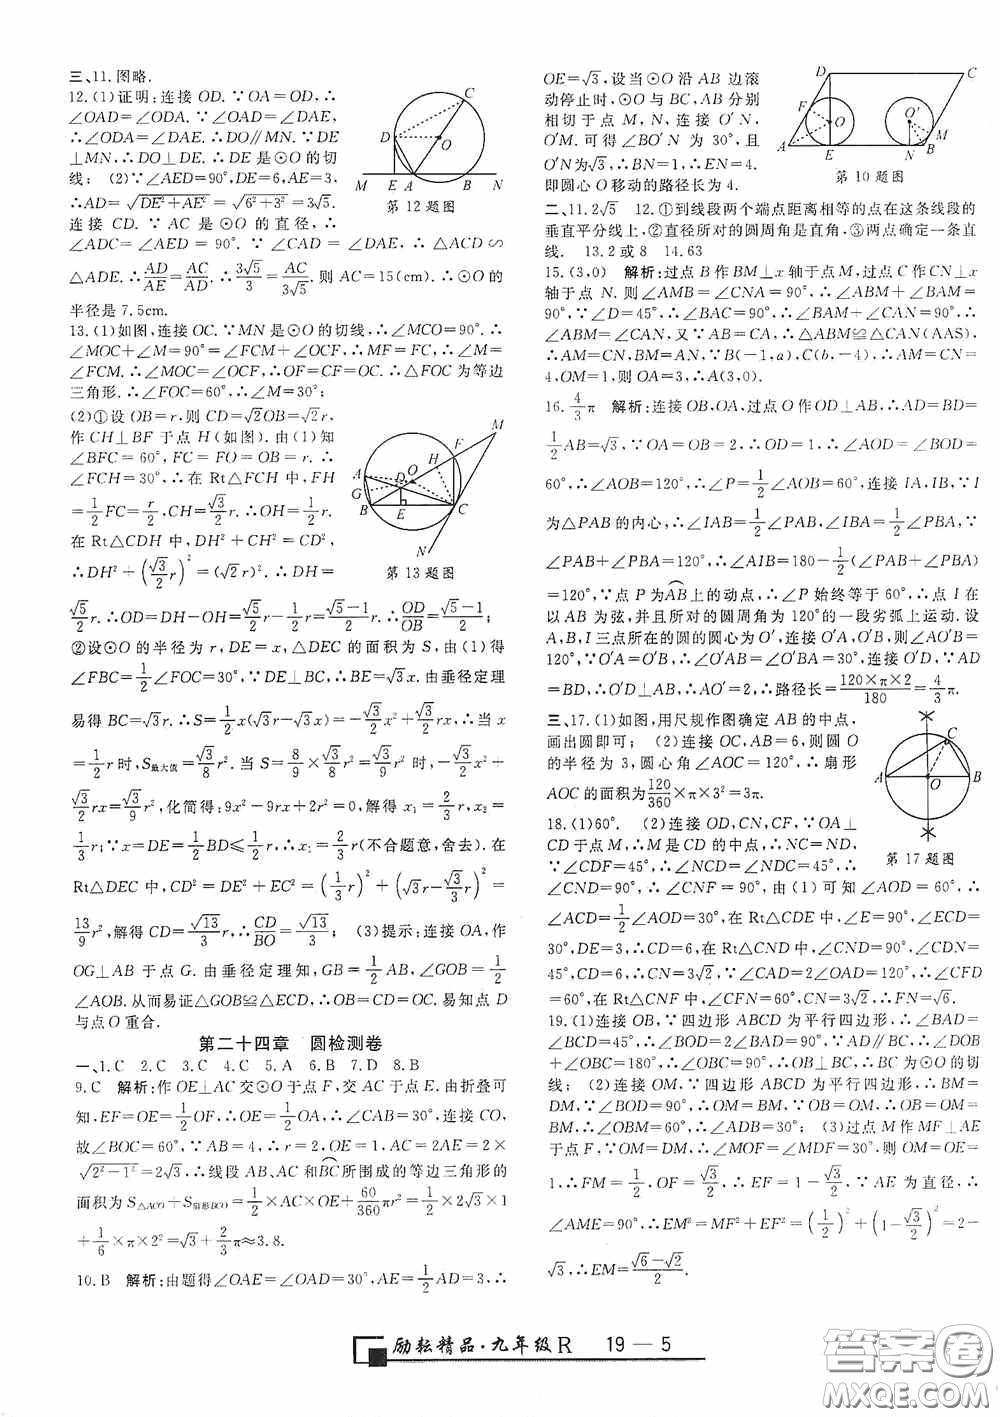 三、11.图略.
12.(1)证明:连接 OD.∵OA=OD,∴
∠OAD=∠ODA.∵∠OAD=∠DAE,
∴∠ODA=∠DAE.∴DO∥MN.∵DE
⊥MN,∴DO⊥DE.∴DE 是⊙O 的切
线; (2)∵∠AED=90°,DE=6,AE=3,
∴AD=√(DE²+AE²)=√(6²+3²)=3√5.
连接 CD.∵AC 是⊙O 的直径,∴
∠ADC=∠AED=90°.∵∠CAD=∠DAE,∴△ACD∽
△ADE.∴AD/AE=AC/AD.∴3√5/3=AC/3√5.则 AC=15(cm).∴⊙O 的
半径是 7.5cm.
第 12 题图
13.(1)如图,连接 OC.∵MN 是⊙O 的切线,∴∠MCO=90°.∴
∠MOC+∠M=90°=∠FCM+∠OCF,∴MF=FC,∴∠M=
∠FCM.∴∠MOC=∠OCF,∴OF=CF=OC.∴△FOC 为等边
三角形.∴∠FOC=60°,∴∠M=30°;
(2)①设 OB=r,则 CD=√2OB=√2r,
作 CH⊥BF 于点 H(如图).由(1)知
∠BFC=60°,FC=FO=OB=r.∴
∠FCH=30°,∴在 Rt△FCH 中,FH
=1/2FC=r/2,CH=√3/2r.∴OH=1/2r.
在 Rt△CDH 中,DH²+CH²=CD²,
∴DH²+(√3/2r)²=(√2r)².∴DH=
√5/2r.∴OD=DH-OH=√5/2r-1/2r=(√5-1)/2r.∴OD/OB=(√5-1)/2;
第 13 题图
②设⊙O 的半径为 r,DE=x,△DEC 的面积为 S,由(1)得
∠FBC=1/2∠FOC=30°,∵DE⊥BC,∴BE=√3x.由垂径定理
易得 BC=√3r.∴S=1/2x(√3r-√3x)=-√3/2x²+√3/2rx,∴当 x
=1/2r 时,S最大值=√3/8r².当 S=8/9×√3/8r²=√3/9r² 时,-√3/2x²+
√3/2rx=√3/9r²,化简得:9x²-9rx+2r²=0,解得 x₁=2/3r,x₂=
1/3r;∵x=DE=1/2BD≤1/2r,∴x₁=2/3r(不合题意,舍去).在
Rt△DEC 中,CD²=DE²+EC²=(1/3r)²+(√3r-√3/3r)²=
13/9r²,解得 CD=√13/3r,∴CD/BO=√13/3; (3)提示:连接 OA,作
OG⊥AB 于点 G.由垂径定理知,GB=1/2AB,∠GOB=1/2
∠AOB.从而易证△GOB≌△ECD,∴OB=CD=OC.易知点 D
与点 O 重合.
第二十四章 圆检测卷
一、1.C 2.C 3.C 4.C 5.A 6.B 7.D 8.B
9.C 解析:作 OE⊥AC 交⊙O 于点 F,交 AC 于点 E.由折叠可
知,EF=OE=1/2OF,∴OE=1/2OA,∴∠CAB=30°,连接 CO,
故∠BOC=60°,∵AB=4,∴r=2,OE=1,∴AC=2AE=2×
√(2²-1²)=2√3,∴线段 AB、AC 和BC所围成的等边三角形的
面积为 S△ACO+S扇形BCO=1/2×AC×OE+60/360πr²=1/2×2√3×1
+1/6×π×2²=√3+2/3π≈3.8.
10.B 解析:由题得∠OAE=∠OAD=30°,AE=1/2AD=3,∴
OE=√3,设当⊙O 沿 AB 边滚
动停止时,⊙O 与 BC,AB 分别
相切于点 M,N,连接 O′N,
O′M.可得∠BO′N 为 30°,且
O′N 为√3,∴BN=1,∴EN=4.
即圆心 O 移动的路径长为 4.
第 10 题图
二、11.2√5 12.①到线段两个端点距离相等的点在这条线段的
垂直平分线上,②直径所对的圆周角是直角,③两点确定一条直
线. 13.2 或 8 14.63
15.(3,0) 解析:过点 B 作 BM⊥x 轴于点 M,过点 C 作 CN⊥x
轴于点 N.则∠AMB=∠CNA=90°,∴∠ABM+∠BAM=
90°,∵∠D=45°,∴∠BAC=90°,∴∠BAM+∠CAN=90°,∴
∠ABM=∠CAN,又∵AB=CA,∴△ABM≌△CAN(AAS),
∴AM=CN,BM=AN,∵B(-1,a),C(b,-4),∴AM=CN=
4,OM=1,则 OA=3,∴A(3,0).
16.4/3π 解析:连接 OB,OA,过点 O 作 OD⊥AB,∴AD=BD=
1/2AB=√3,∵OA=OB=2,∴OD=1,∴∠AOD=∠BOD=
60°,∴∠AOB=120°,∴∠P=1/2∠AOB=60°,连接 IA,IB,∵I
为△PAB 的内心,∴∠IAB=1/2∠PAB,∠IBA=1/2∠PBA,∵
∠PAB+∠PBA=120°,∴∠AIB=180-1/2(∠PAB+∠PBA)
=120°,∵点 P 为AB上的动点,∴∠P 始终等于 60°,∴点 I 在
以 AB 为弦,并且所对的圆周角为 120°的一段劣弧上运动.设
A,B,I 三点所在的圆的圆心为 O′,连接 O′A,O′B,则∠AO′B=
120°,∵O′A=O′B,∴∠O′AB=∠O′BA=30°,连接 O′D,∵AD
=BD,∴O′D⊥AB,∴AO′=2,∴路径长=120×π×2/180=4/3π.
三、17.(1)如图,用尺规作图确定 AB 的中点,
画出圆即可; (2)连接 OC,AB=6,则圆 O
的半径为 3,圆心角∠AOC=120°,∴扇形
AOC 的面积为120/360×π×3²=3π.
18.(1)60°. (2)连接 OD,CN,CF,∵OA⊥
CD 于点 M,∴M 是 CD 的中点,∴NC=ND,
∵∠CDF=45°,∴∠NCD=∠NDC=45°,∴
∠CND=90°,∴∠CNF=90°,由(1)可知∠AOD=60°,∴
∠ACD=1/2∠AOD=30°,在 Rt△CDE 中,∠E=90°,∠ECD=
30°,DE=3,∴CD=6,在 Rt△CND 中,∠CND=90°,∠CDN=
45°,CD=6,∴CN=3√2,∵∠CAD=2∠OAD=120°,∴∠CFD
=60°,在 Rt△CNF 中,∠CFN=60°,CN=3√2,∴FN=√6.
第 17 题图
19.(1)连接 OB,∵四边形 ABCD 为平行四边形,∴∠BAD=
∠BCD=45°,∴∠BOD=2∠BAD=90°,∵AD∥BC,∴∠DOB
+∠OBC=180°,∴∠OBC=90°,∴OB⊥BC,∴BC 为⊙O 的切
线; (2)连接 OM,∵四边形 ABCD 为平行四边形,∴BM=
DM,∵∠BOD=90°,∴OM=BM,∵OB=OM,∴OB=OM
=BM,∴∠OBM=60°,∴∠ADB=30°; (3)过点 M 作 MF⊥AE
于点 F,∵OM=DM,∴∠MOF=∠MDF=30°,∵OM=OE=
1,∴FM=1/2,OF=√3/2,∴EF=1-√3/2,∵AE 为直径,∴
∠AME=90°,∴EM²=MF²+EF²=(1/2)²+(1-√3/2)²=2-
√3,∴EM=(√6-√2)/2.
励耘精品·九年级 R 19 — 5
答案圈
MXQE.COM